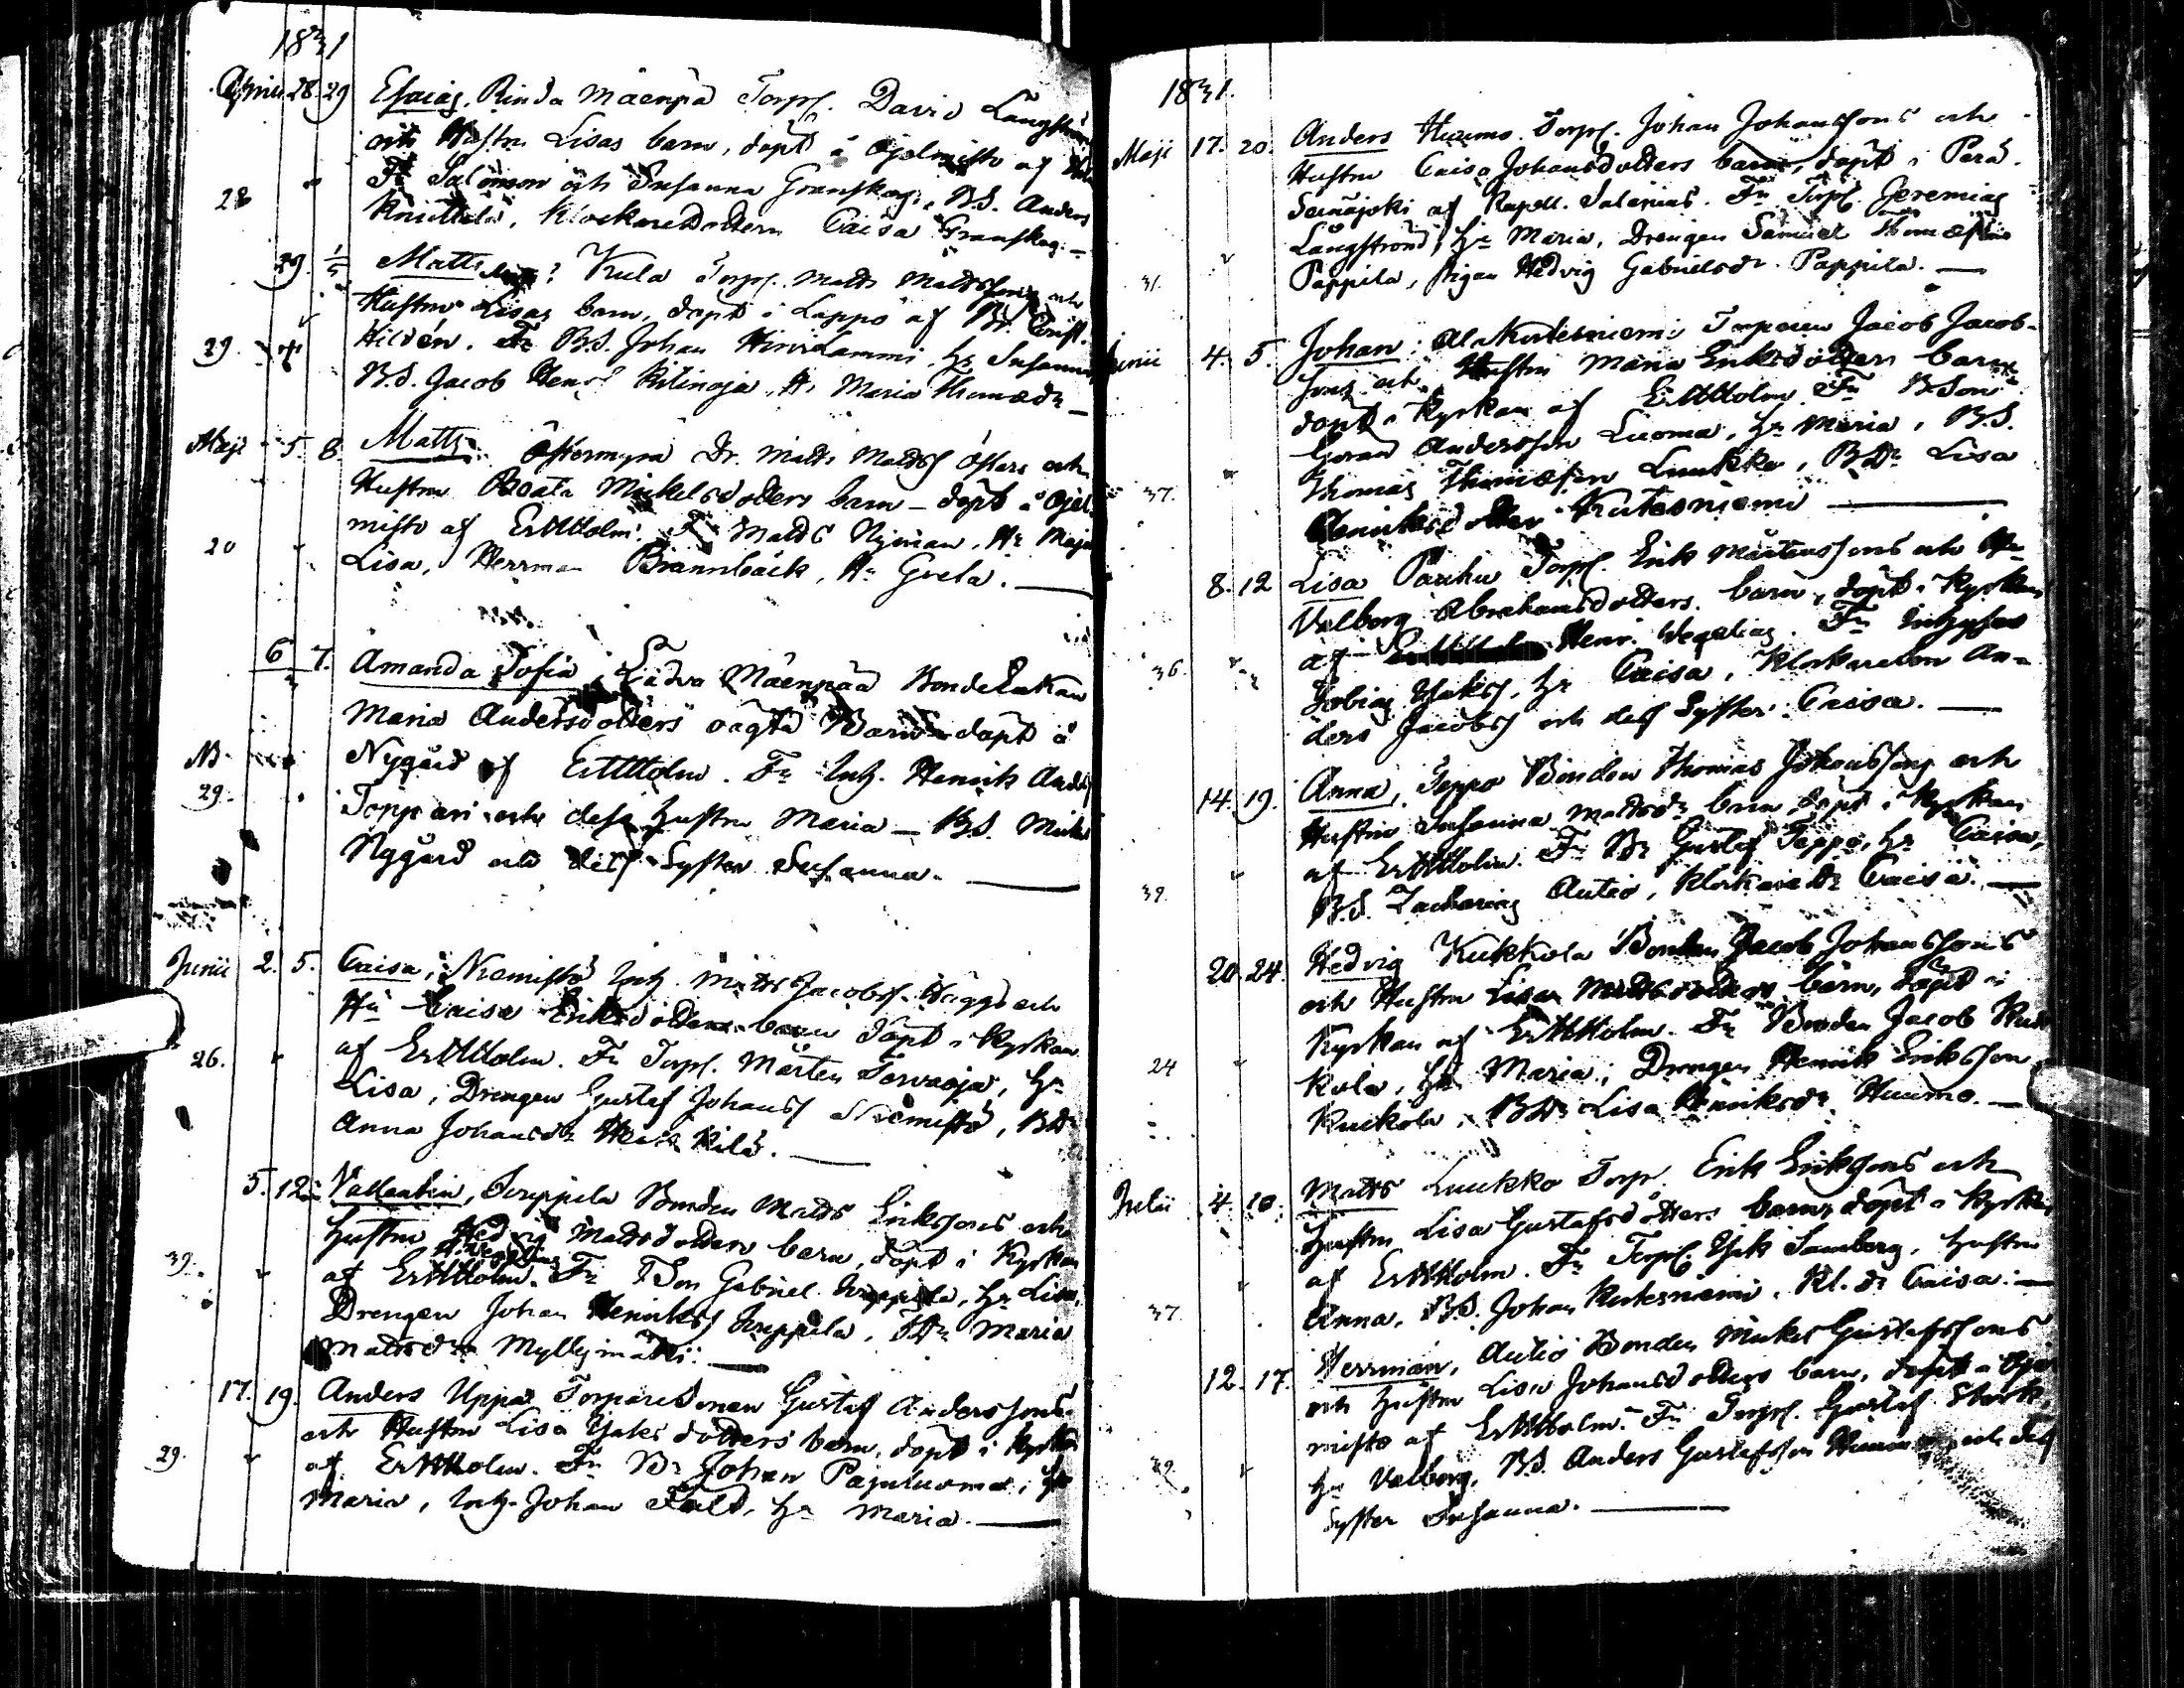 1831
Aprill 28. 29 Esaias. Rinda Mäenpä Torpf. David Långström
och Hustru Lisas barn, döpt å Ojelmisto af
28 Fr Salomon och Susanna Granskog, B.S. Anders
Knuttila, Klockaredottern Caisa Granskog. —
29. 1/5 Matts Kula Torpf. Matts Mattssons och
Hustrus Lisas barn, döpt i Lappo af Br. Crist.
29. Hildén. Fr B.S. Johan Hirvilammi, Hr Susanna
B.S. Jacob Henrs Ritinoja, Hr Maria Thomædr —
Maji 5. 8. Matts. Östermyra Dr. Matts Matds Östers och
Hustrun Beata Mickelsdotters barn — döpt å Ojel
20 misto af ErWHolm. Fr Matds Nyman, Hr Maja
Lisa, Herrman Brannback, Hr Greta. —
6 7. Amanda Sofia, Ladva Mäenpää Bonde Enkan
Maria Andersdotters oägta Barn döpt å
NB. Nygård af ErWHolm. Fr Inh. Henrik Anders
29. Toppari och dess hustru Maria — B.S. Mickel
Nygård och dess Syster Susanna. —
Junii 2. 5. Caisa, Niemistö Inh. Matts Jacobss. Hägg och
Hu Caisa Eriksdotters barn döpt i Kyrkan
26. af ErWHolm. Fr Torpf. Mårten Tervaoja, Hr
Lisa, Drengen Gustaf Johanss Niemistö, BDr
Anna Johansdr Kilä. —
5. 12. Vallentin, Seppila Bonden Matds Erikssons och
Hustru Hedvig Mattsdotters barn, döpt i Kyrkan
H. Wegelius
39. af ErWHolm. Fr BSon Gabriel, Hr Lisa,
Drengen Johan Henriks, BDr Maria
Mattsdr Myllymäki. —
17. 19. Anders Uppa Torparesonen Gustaf Anderssons
och Hustru Lisa Isaksdotters barn, döpt i Kyrkan
29. af ErWHolm. Fr Br Johan Pajuluoma, Hr
Maria, Inh. Johan Fält, Hr Maria. —
1831.
Maji 17. 20. Anders Huumo. Torpf. Johan Johanssons och
Hustru Caisa Johansdotters barn, döpt i Perä
Seinäjoki af Kapell. Salenius. Fr Torpf. Jeremias
Långström, Hr Maria, Drengen Samuel Thomæson
31. Pappila, Pigan Hedvig Gabrielsdr Pappila. —
Junii 4. 5. Johan: Ala Kutesniemi Torparen Jacob Jacob-
sons och Hustru Maria Eriksdotters barn
döpt i Kyrkan af ErWHolm Fr BSon
Göran Andersson Luoma, Hr Maria, B.S.
37. Thomas Thomæson Luukko, BDr Lisa
Henriksdotter Kutesniemi —
8. 12 Lisa Pauhu Torpf. Erik Mårtenssons och Hu
Valborg Abrahamsdotters. barn, döpt i Kyrkan
af Henr. Wegelius. Fr Inhyses
36. Tobias Isaks, Hr Caisa, Klockareson An-
ders Jacobs och dess Syster Caisa. —
14. 19. Anna, Seppo Bonden Thomas Johanssons och
Hustru Susanna Matsdr barn döpt i Kyrkan
af ErWHolm. Fr Br Gustaf Seppo, Hr Caisa,
39. B.S. Zacharias Autio, Klockare Dr Caisa. —
20. 24. Hedvig Kukkola Bonden Jacob Johanssons
och Hustru Lisa Mattsdotters barn, döpt i
Kyrkan af ErWHolm. Fr Bonden Jacob Kuc
24 kola, Hr Maria, Drengen Henrik Eriksson
Kuckola, BDr Lisa Henriksdr Huumo. —
Julii 4. 10. Matts Luukko Torp. Erik Erikssons och
Hustru Lisa Gustafsdotters barn, döpt i Kyrkan
af ErWHolm. Fr Torpf. Isak Samberg, Hustru
37. Anna, B.S. Johan Kutesniemi, Kl. Dr Caisa. —
12. 17. Herrman, Autio Bonden Mickel Gustafssons
och Hustru Lisa Johansdotters barn, döpt å Ojel
misto af ErWHolm. Fr Torpf. Gustaf Stork,
39. Hr Valborg, B.S. Anders Gustafsson Huumo och dess
Syster Susanna. —